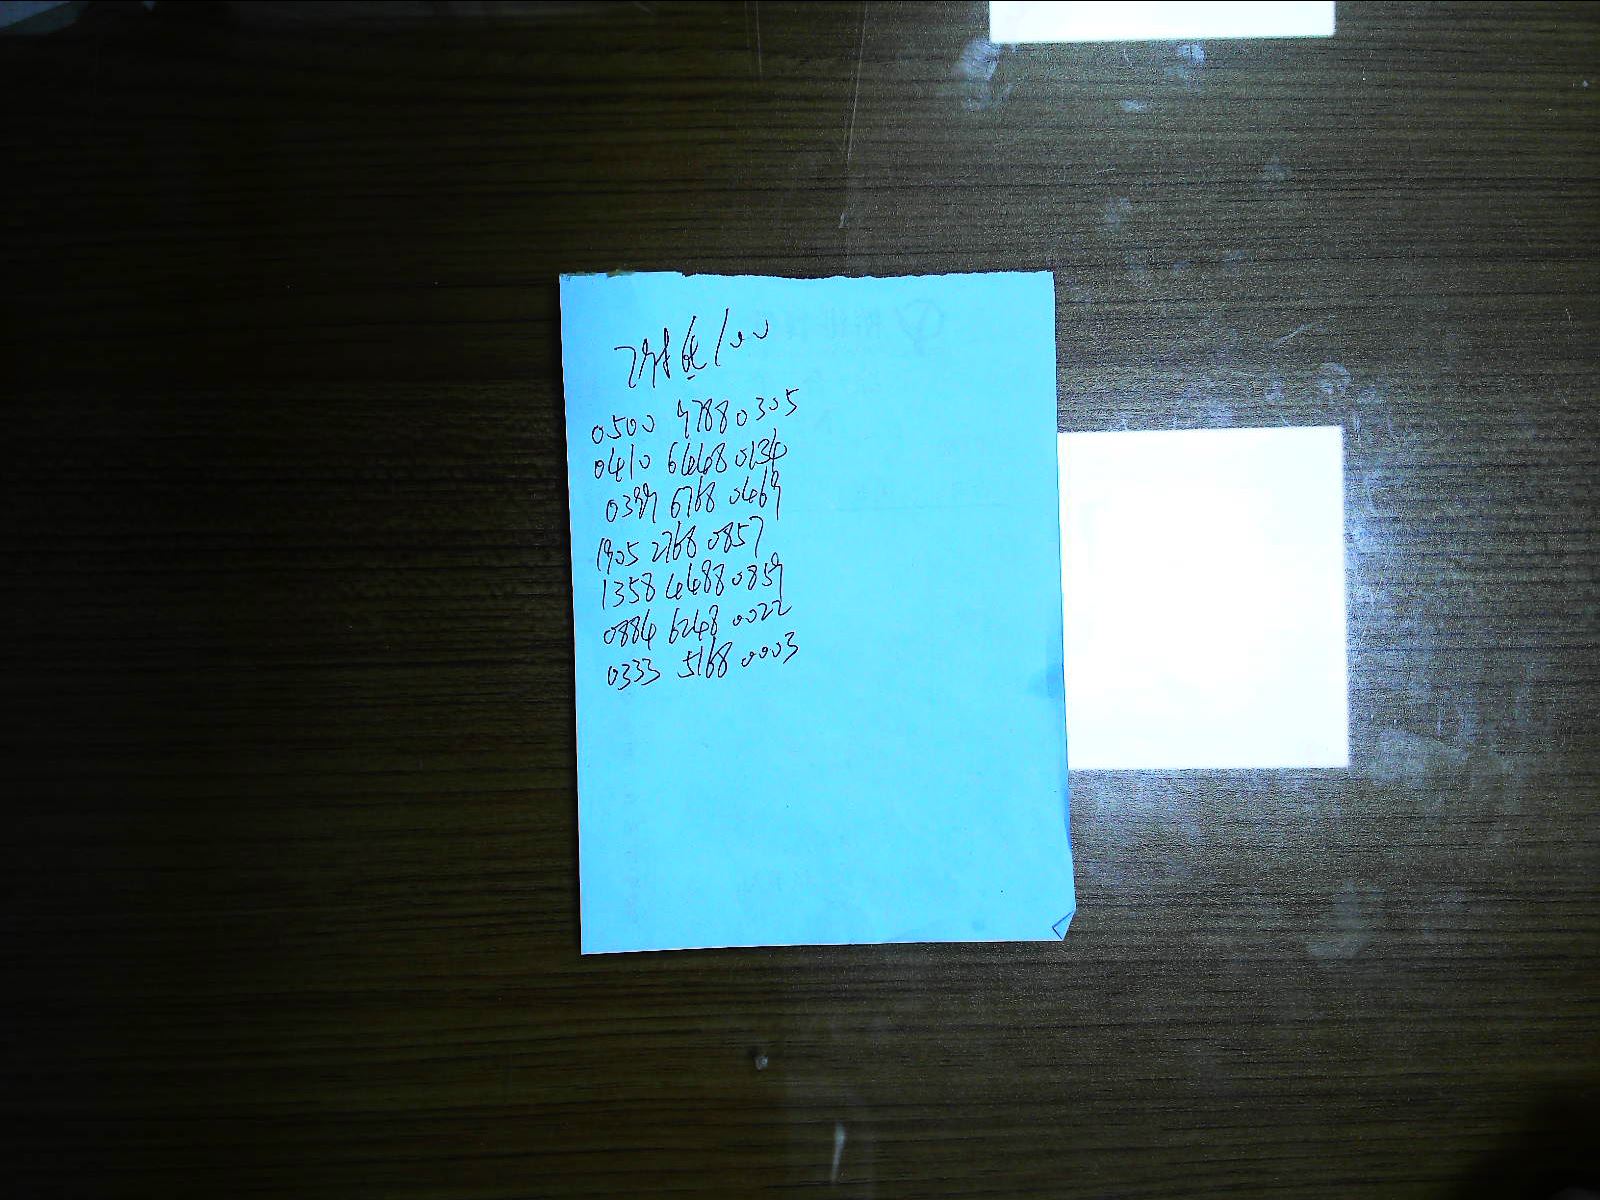 100
0500 97880305
0410 64480134
0399 6768 0469
1905 2768 0857
1358 44880859
0884 6248 0022
0333 5168 0003